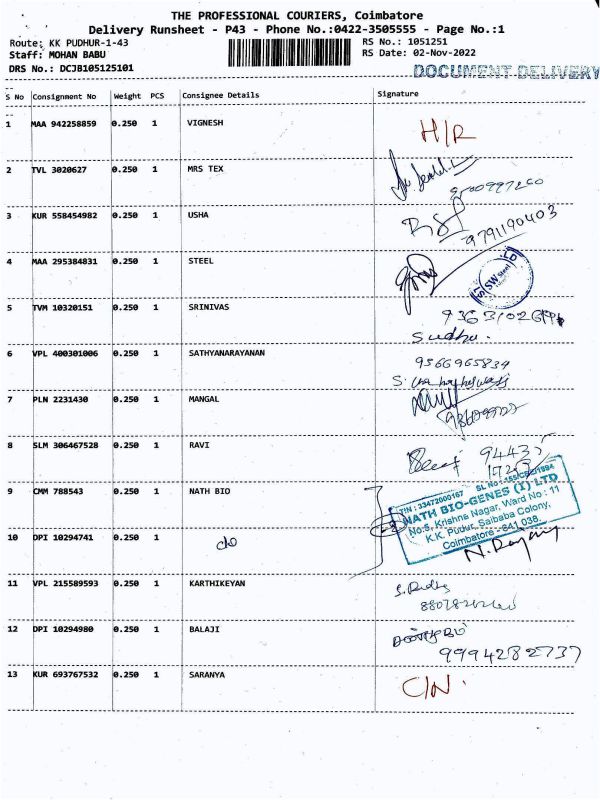 THE PROFESSIONAL COURIERS, Coimbatore
Delivery Runsheet - P43 - Phone No.:0422-3505555 - Page No.:1
Route: KK PUDHUR-1-43
RS No.: 1051251
Staff: MOHAN BABU
RS Date: 02-Nov-2022
DRS No.: DCJB105125101
DOCUMENT DELIVERY
S No Consignment No Weight PCS Consignee Details Signature
1 MAA 942258859 0.250 1 VIGNESH H/R
2 TVL 3020627 0.250 1 MRS TEX
3 KUR 558454982 0.250 1 USHA 9791190403
4 MAA 295384831 0.250 1 STEEL SW Steel LD
5 TVM 10320151 0.250 1 SRINIVAS
Sudha.
6 VPL 400301006 0.250 1 SATHYANARAYANAN 9566965834
7 PLN 2231430 0.250 1 MANGAL
8 SLM 306467528 0.250 1 RAVI 94435
9 CMM 788543 0.250 1 NATH BIO
TIN : 33472000167 SL No : 155/CBE/1994
NATH BIO-GENES (I) LTD
No:5, Krishna Nagar, Ward No : 11
K.K. Pudur, Saibaba Colony,
Coimbatore - 641 038.
10 DPI 10294741 0.250 1 do
11 VPL 215589593 0.250 1 KARTHIKEYAN
12 DPI 10294980 0.250 1 BALAJI
9994282737
13 KUR 693767532 0.250 1 SARANYA C/N.